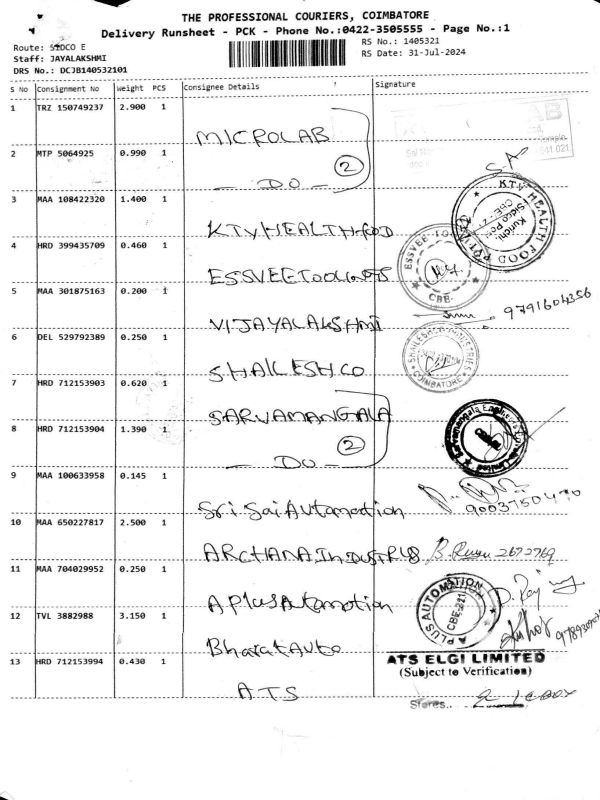 THE PROFESSIONAL COURIERS, COIMBATORE
Delivery Runsheet - PCK - Phone No.:0422-3505555 - Page No.:1
Route: SIDCO E
Staff: JAYALAKSHMI
DRS No.: DCJB140532101
RS No.: 1405321
RS Date: 31-Jul-2024
S No Consignment No Weight PCS Consignee Details Signature
1 TRZ 150749237 2.900 1 MICROLAB
2 MTP 5064925 0.990 1 - DO - 2
3 MAA 108422320 1.400 1 KTV HEALTH FOOD
KTV HEALTH FOOD
Kurichi
Sidco Post
CBE-
4 HRD 399435709 0.460 1
ESSVEE
CBE-
5 MAA 301875163 0.200 1 VIJAYALAKSHMI 9791604356
6 DEL 529792389 0.250 1 SHAILESHCO
SHAILESHCO INDUSTRIES
COIMBATORE
7 HRD 712153903 0.620 1 SARVAMANGALA
8 HRD 712153904 1.390 1 - DO - 2
Sarvamangala
9 MAA 100633958 0.145 1 Sri.Sai Automation
10 MAA 650227817 2.500 1 ARCHANA INDUSTRIES 2672769
11 MAA 704029952 0.250 1 A Plus Automation
A PLUS AUTOMATION
12 TVL 3882988 3.150 1 Bharat Auto
13 HRD 712153994 0.430 1 ATS
ATS ELGI LIMITED
(Subject to Verification)
Stores..